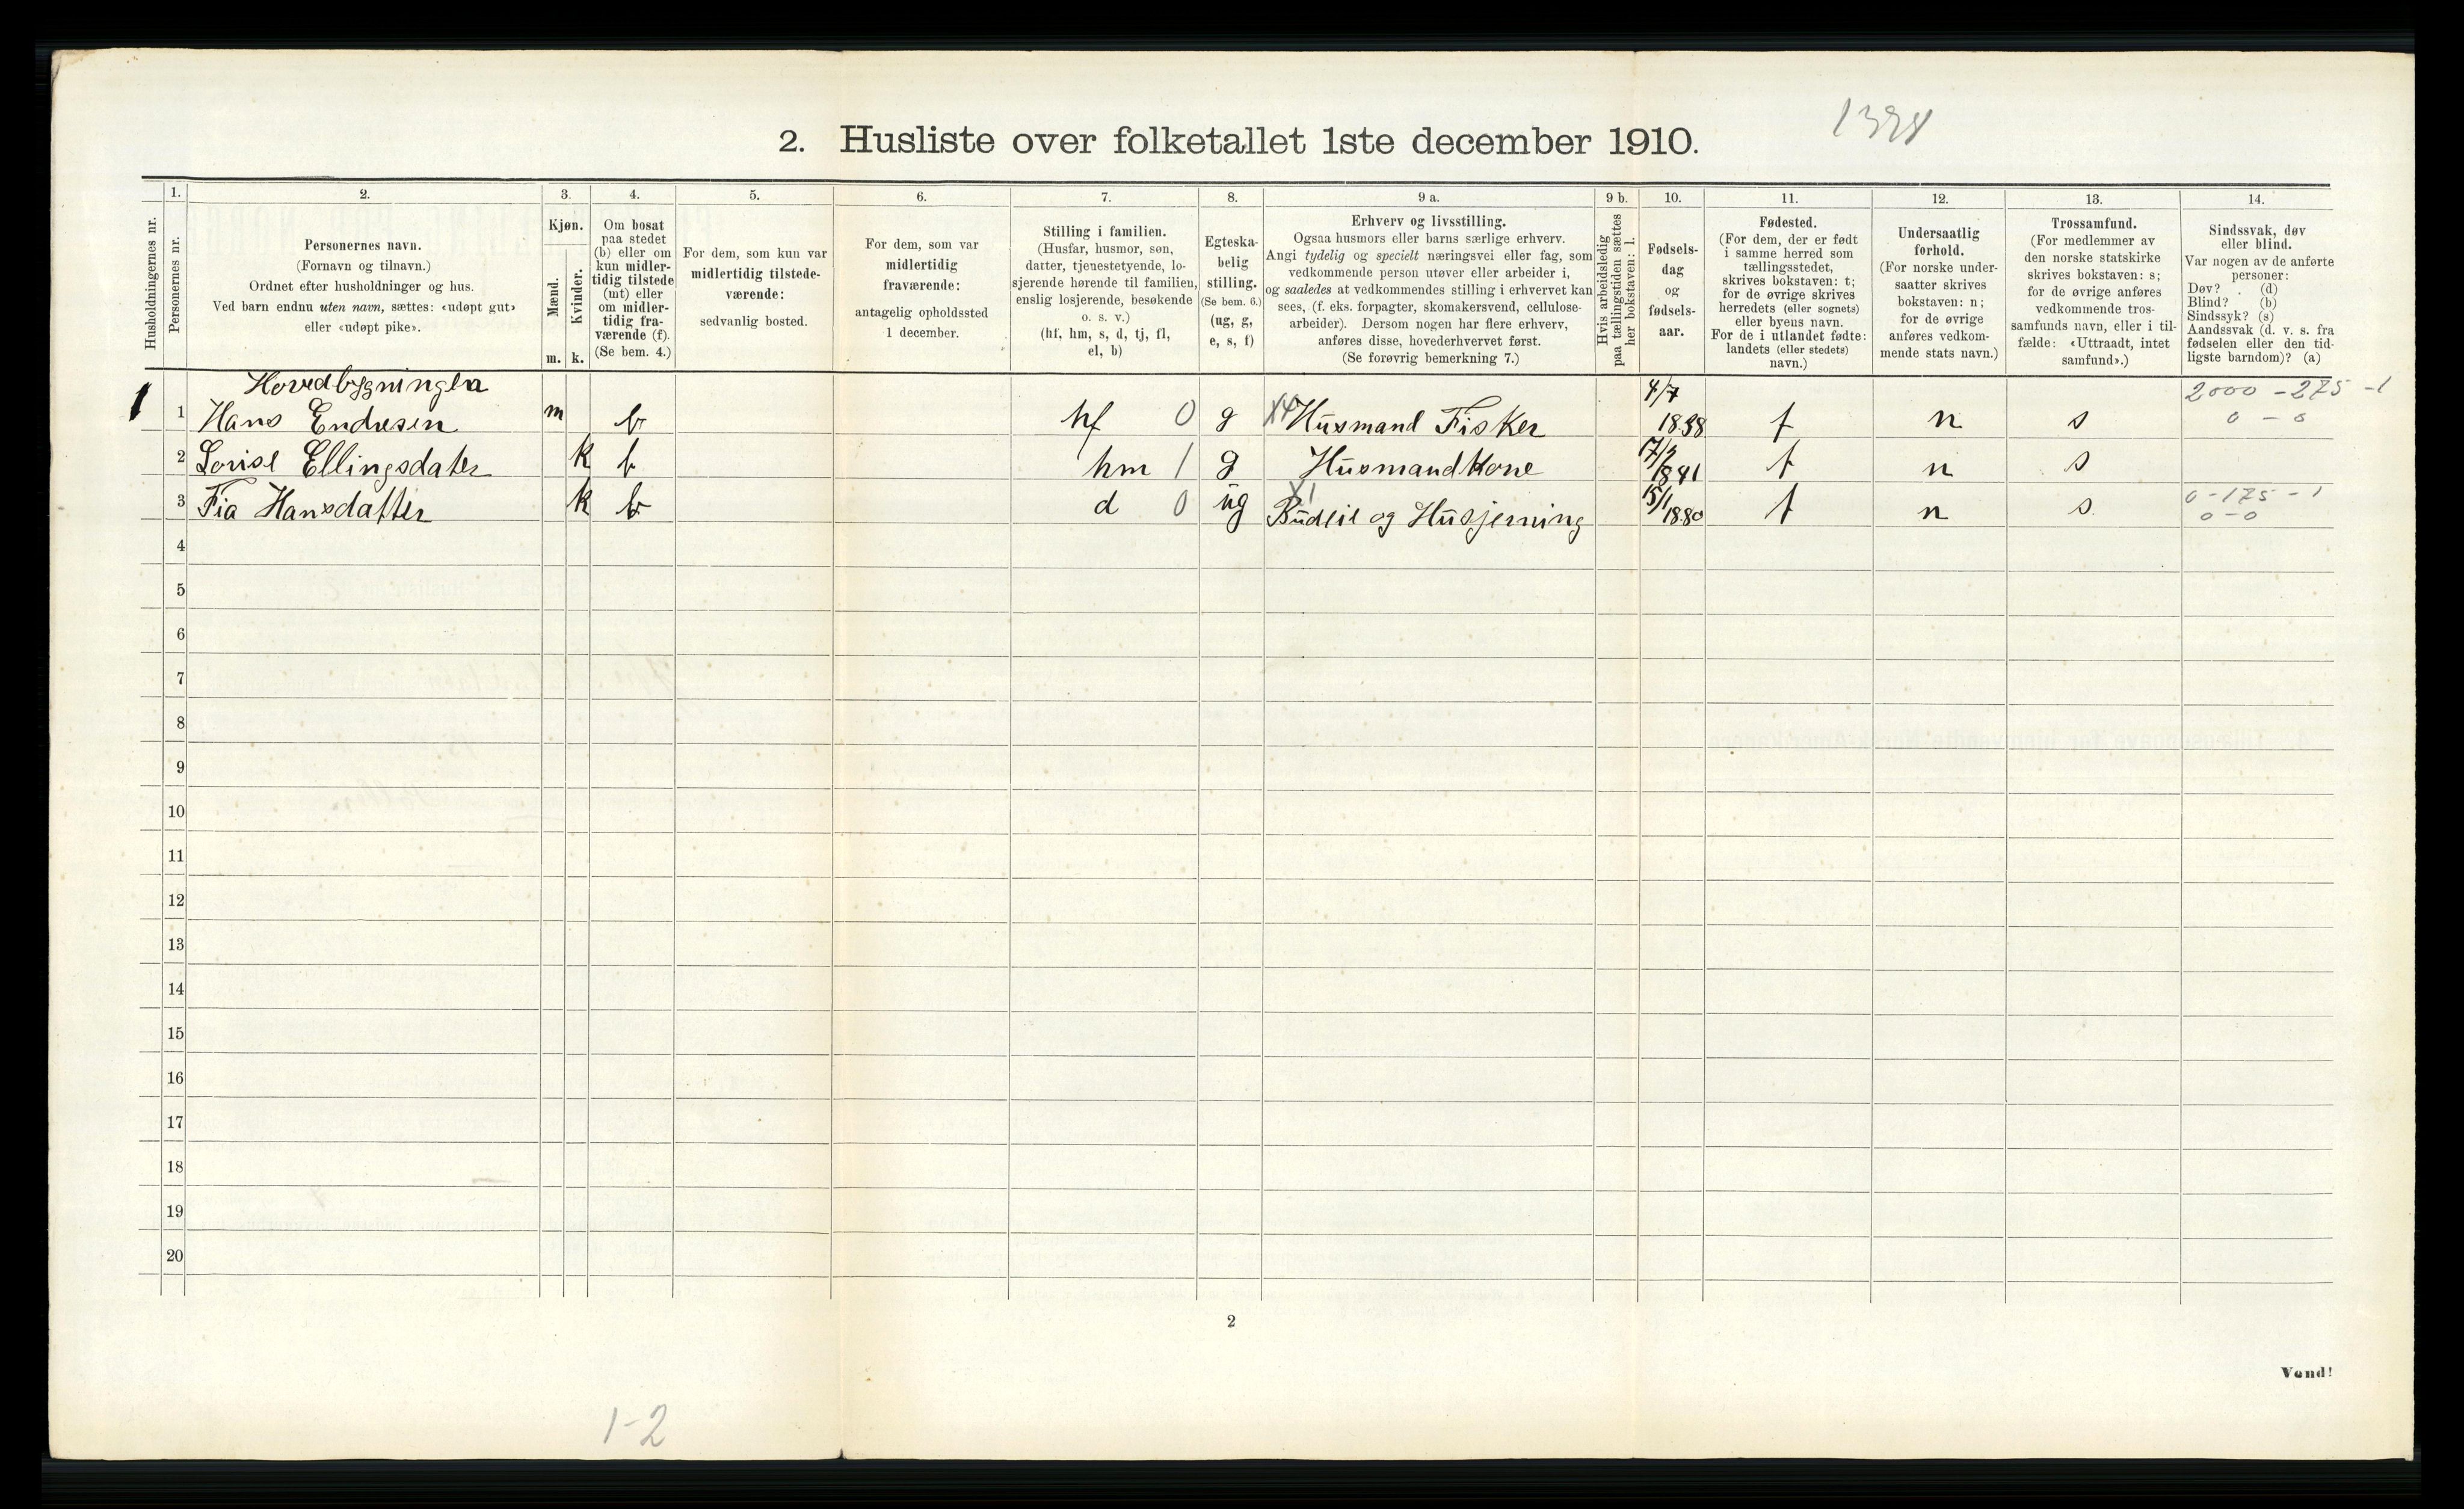 2. Husliste over folketallet 1ste december 1910.
1. 2. 3. 4. 5. 6. 7. 8. 9 a. 9 b. 10. 11. 12. 13. 14.
Husholdningernes nr.
Personernes nr.
Personernes navn.
(Fornavn og tilnavn.)
Ordnet efter husholdninger og hus.
Ved barn endnu uten navn, sættes: «udøpt gut»
eller «udøpt pike».
Kjøn.
Mænd.
Kvinder.
m. k.
Om bosat
paa stedet
(b) eller om
kun midler-
tidig tilstede
(mt) eller
om midler-
tidig fra-
værende (f).
(Se bem. 4.)
For dem, som kun var
midlertidig tilstede-
værende:
sedvanlig bosted.
For dem, som var
midlertidig
fraværende:
antagelig opholdssted
1 december.
Stilling i familien.
(Husfar, husmor, søn,
datter, tjenestetyende, lo-
sjerende hørende til familien,
enslig losjerende, besøkende
o. s. v.)
(hf, hm, s, d, tj, fl,
el, b)
Egteska-
belig
stilling.
(Se bem. 6.)
(ug, g,
e, s, f)
Erhverv og livsstilling.
Ogsaa husmors eller barns særlige erhverv.
Angi tydelig og specielt næringsvei eller fag, som
vedkommende person utøver eller arbeider i,
og saaledes at vedkommendes stilling i erhvervet kan
sees, (f. eks. forpagter, skomakersvend, cellulose-
arbeider). Dersom nogen har flere erhverv,
anføres disse, hovederhvervet først.
(Se forøvrig bemerkning 7.)
Hvis arbeidsledig
paa tællingstiden sættes
her bokstaven: l.
Fødsels-
dag
og
fødsels-
aar.
Fødested.
(For dem, der er født
i samme herred som
tællingsstedet,
skrives bokstaven: t;
for de øvrige skrives
herredets (eller sognets)
eller byens navn.
For de i utlandet fødte:
landets (eller stedets)
navn.)
Undersaatlig
forhold.
(For norske under-
saatter skrives
bokstaven: n;
for de øvrige
anføres vedkom-
mende stats navn.)
Trossamfund.
(For medlemmer av
den norske statskirke
skrives bokstaven: s;
for de øvrige anføres
vedkommende tros-
samfunds navn, eller i til-
fælde: «Uttraadt, intet
samfund».)
Sindssvak, døv
eller blind.
Var nogen av de anførte
personer:
Døv? . (d)
Blind? (b)
Sindssyk? (s)
Aandssvak (d. v. s. fra
fødselen eller den tid-
ligste barndom)? (a)
Hovedbygningen 4/7 2000 - 275 - 1
1 1 Hans Endresen m b hf 0 g X4 Husmand Fisker 1838 t n s 0 - 0
2 Lovise Ellingsdater k b hm 1 g Husmandkone 1841 t n s
3 Fia Hansdatter k b d 0 ug X1 Budeie og Husjerning 15/1 1880 t n s 0 - 175 - 1
0 - 0
4
5
6
7
8
9
10
11
12
13
14
15
16
17
18
19
20
2
Vend!
1-2